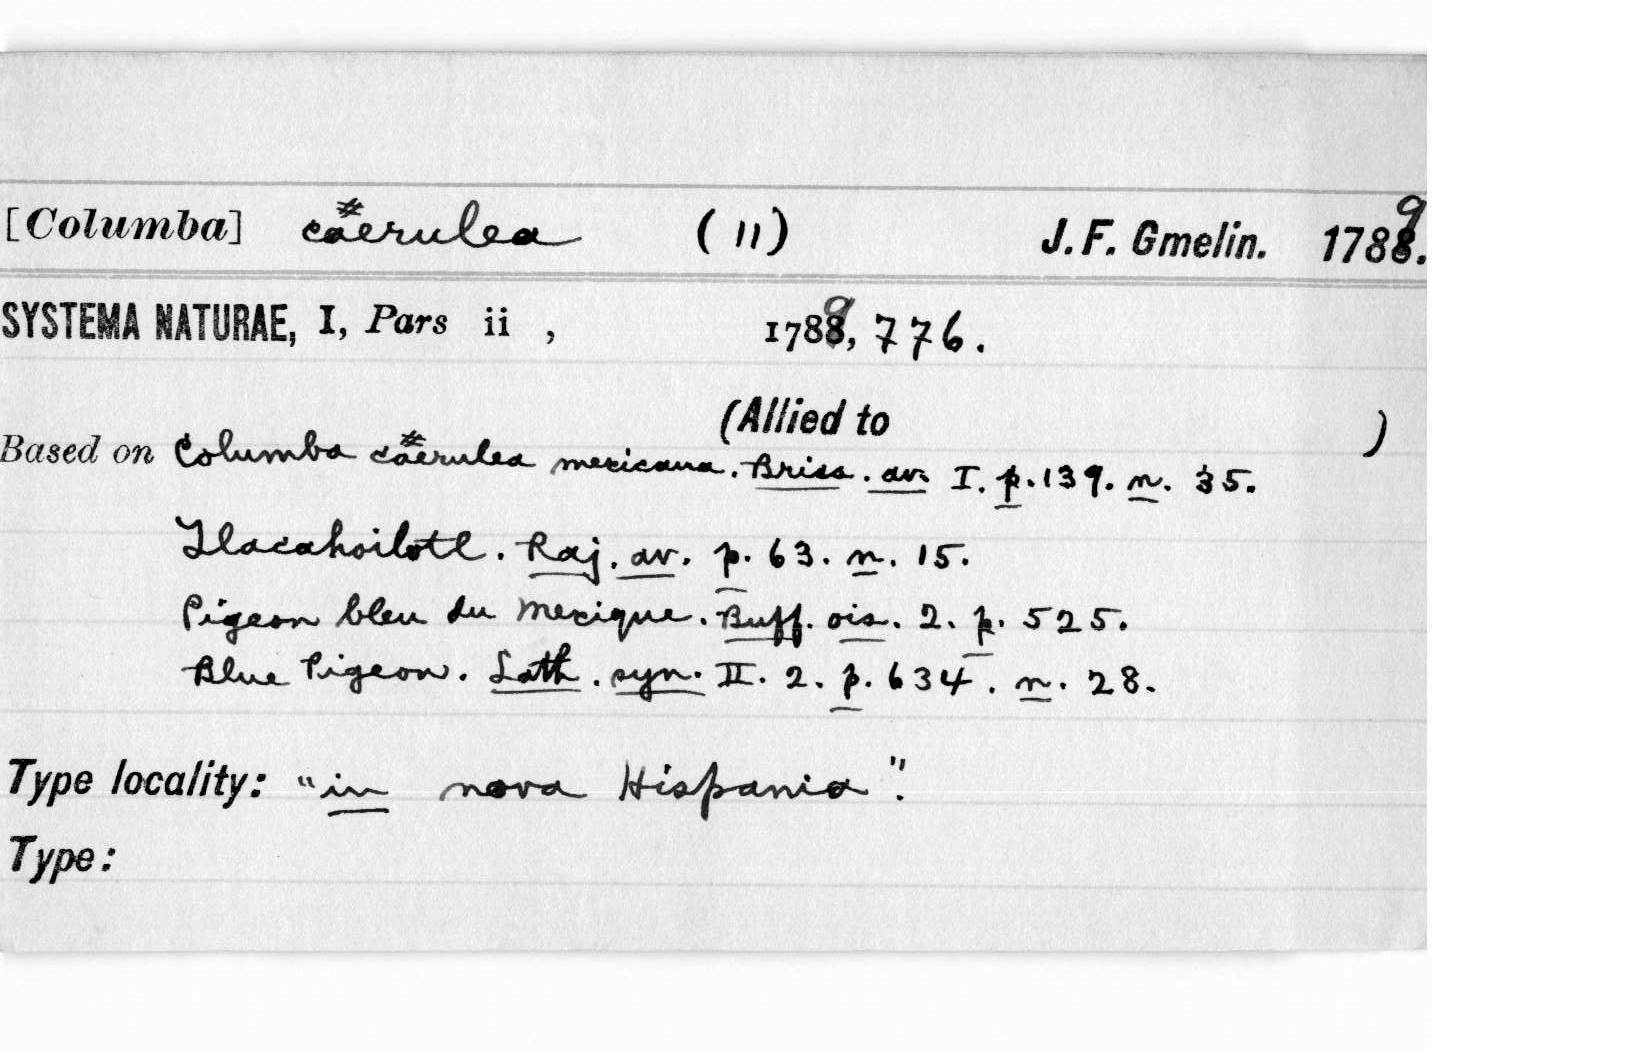 [Columba] cærulea (11) J. F. Gmelin. 1789.
SYSTEMA NATURAE, I, Pars ii , 1789, 776.
(Allied to )
Based on Columba cærulea mexicana. Briss. av. I. p. 139. n. 35.
Tlacahoilotl. Raj. av. p. 63. n. 15.
Pigeon bleu du Mexique. Buff. ois. 2. p. 525.
Blue Pigeon. Lath. syn. II. 2. p. 634. n. 28.
Type locality: "in nova Hispania".
Type: